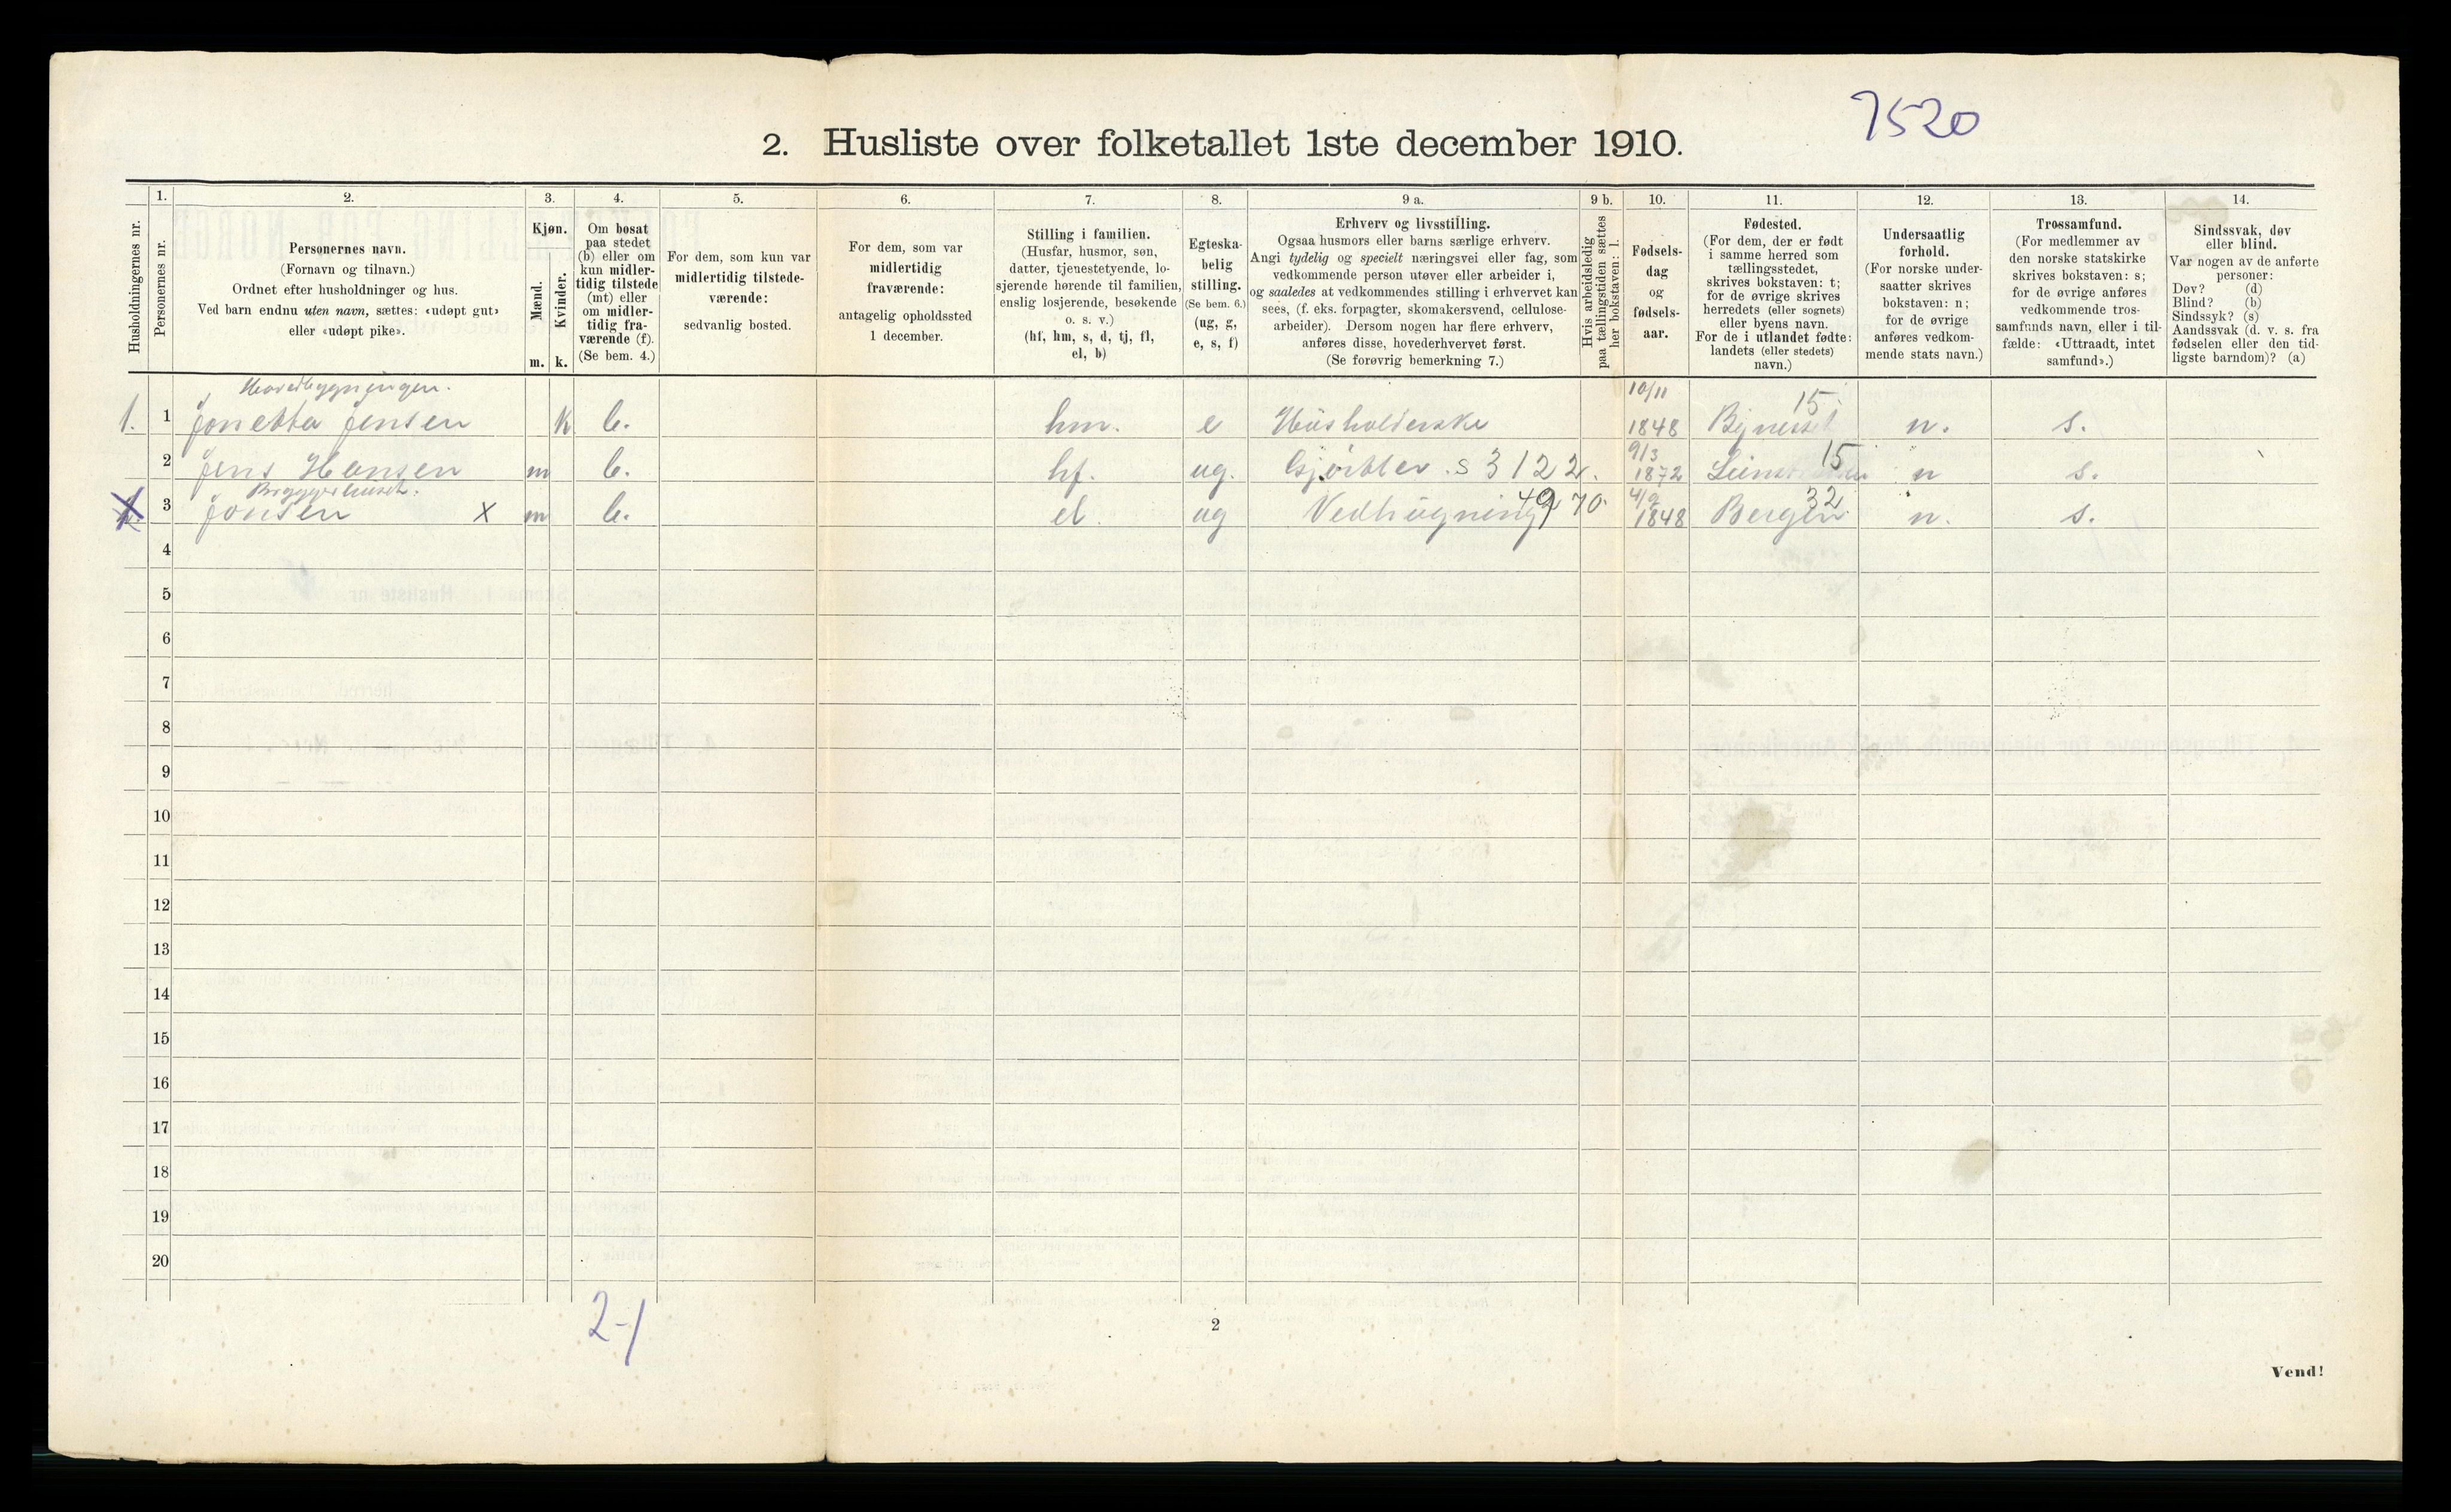 7520
2. Husliste over folketallet 1ste december 1910.
Husholdningernes nr.
1.
Personernes nr.
2.
Personernes navn.
(Fornavn og tilnavn.)
Ordnet efter husholdninger og hus.
Ved barn endnu uten navn, sættes: «udøpt gut»
eller «udøpt pike».
3.
Kjøn.
Mænd.
m.
Kvinder.
k.
4.
Om bosat
paa stedet
(b) eller om
kun midler-
tidig tilstede
(mt) eller
om midler-
tidig fra-
værende (f).
(Se bem. 4.)
5.
For dem, som kun var
midlertidig tilstede-
værende:
sedvanlig bosted.
6.
For dem, som var
midlertidig
fraværende:
antagelig opholdssted
1 december.
7.
Stilling i familien.
(Husfar, husmor, søn,
datter, tjenestetyende, lo-
sjerende hørende til familien,
enslig losjerende, besøkende
o. s. v.)
(hf, hm, s, d, tj, fl,
el, b)
8.
Egteska-
belig
stilling.
(Se bem. 6.)
(ug, g,
e, s, f)
9 a.
Erhverv og livsstilling.
Ogsaa husmors eller barns særlige erhverv.
Angi tydelig og specielt næringsvei eller fag, som
vedkommende person utøver eller arbeider i,
og saaledes at vedkommendes stilling i erhvervet kan
sees, (f. eks. forpagter, skomakersvend, cellulose-
arbeider). Dersom nogen har flere erhverv,
anføres disse, hovederhvervet først.
(Se forøvrig bemerkning 7.)
9 b.
Hvis arbeidsledig
paa tællingstiden sættes
her bokstaven: l.
10.
Fødsels-
dag
og
fødsels-
aar.
11.
Fødested.
(For dem, der er født
i samme herred som
tællingsstedet,
skrives bokstaven: t;
for de øvrige skrives
herredets (eller sognets)
eller byens navn.
For de i utlandet fødte:
landets (eller stedets)
navn.)
12.
Undersaatlig
forhold.
(For norske under-
saatter skrives
bokstaven: n;
for de øvrige
anføres vedkom-
mende stats navn.)
13.
Trossamfund.
(For medlemmer av
den norske statskirke
skrives bokstaven: s;
for de øvrige anføres
vedkommende tros-
samfunds navn, eller i til-
fælde: «Uttraadt, intet
samfund».)
14.
Sindssvak, døv
eller blind.
Var nogen av de anførte
personer:
Døv? (d)
Blind? (b)
Sindssyk? (s)
Aandssvak (d. v. s. fra
fødselen eller den tid-
ligste barndom)? (a)
Hovedbygningen.
1. 1 Jonetta Jensen k b. hm. e Husholderske 10/11 1848 15 n. s.
2 Jens Hansen m b. hf. ug. s 3122. 9/3 1872 15 n s.
Bryggerhuset.
3 Jonsen x m b. el. ug Vedhugning 4970 4/9 1848 Bergen 32 n. s.
4
5
6
7
8
9
10
11
12
13
14
15
16
17
18
19
20
2-1
2
Vend!